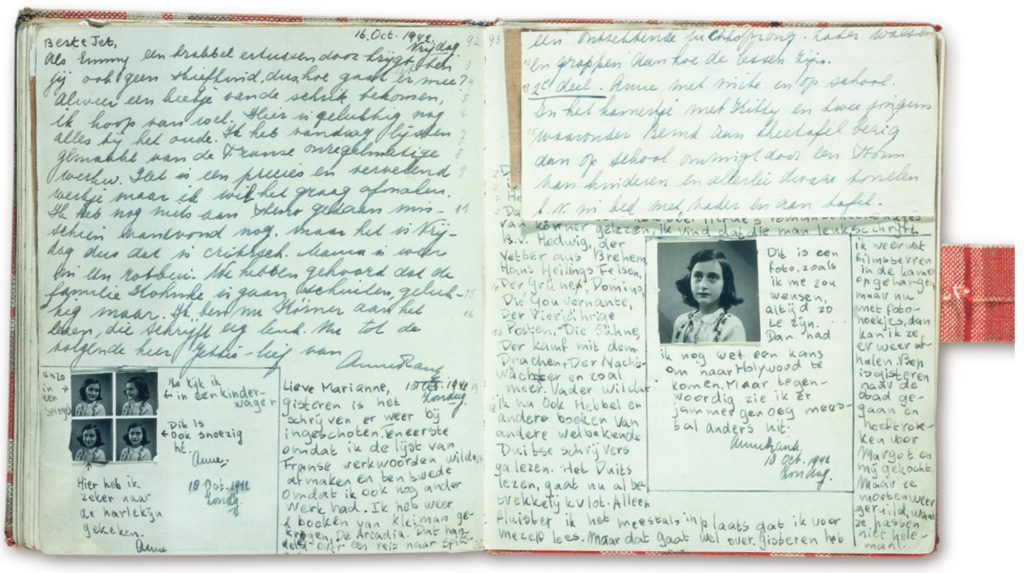 16. Oct. 1942
Vrijdag
Beste Jet,
Als Emmy een krabbel ertussendoor krijgt, ben
jij ook geen stiefkind, dus hoe gaat er mee?
Alweer een beetje van de schrik bekomen,
ik hoop van wel. Hier is gelukkig nog
alles bij het oude. Ik heb vandaag lijsten
gemaakt van de Franse onregelmatige
werkw. Het is een precies en vervelend
werkje maar ik wil het graag afmaken.
Ik heb nog niets aan steno gedaan mis-
schien vanavond nog, maar het is Vrij-
dag dus dat is critisch. Mama is weer
in een rotbui. We hebben gehoord dat de
familie is gaan schuilen, geluk-
kig maar. Ik ben nu Körner aan het
lezen, die schrijft erg leuk. Nu tot de
volgende keer Jettie-lief van
Anne Frank
92
en zo
in
een
spiegel
Ho kijk ik
in een kinder-
wagen
Dit is
ook snoezig
hè.
Anne.
18 Oct. 1942
Zondag
Hier heb ik
zeker naar
de harlekijn
gekeken.
Anne
Lieve Marianne,
18 Oct. 1942
Zondag.
gisteren is het
schrijven er weer bij
ingeschoten. Eneerste
omdat ik de lijst van
Franse werkwoorden wilde
afmaken en ten twede
omdat ik ook nog ander
werk had. Ik heb weer
2 boeken van kleiman ge-
kregen. De Arcadia. Dat han-
deld over een reis naar Spits-
93
een ontzettende luchtsprong. Later walsen
en grappen aan hoe de lessen zijn.
2e deel. Anne met niche en op school.
In het kamertje met Kitty en twee jongens
waaronder Bernd aan theetafel bezig
dan op school omringd door een drom
van kinderen en allerlei dwaze tonelen
b.v. in bed met vader en aan tafel.
van körner gelezen, ik vind dat die man leuk schrijft.
B.v. Hedwig, der
Vetter aus Bremen,
Hans Heilings Felsen,
Der grüne Domino,
Die Gouvernante,
Der Vierjährige
Posten, Die Sühne,
Der kampf mit dem
Drachen, Der Nacht-
wächter en zoo
meer. Vader wil dat
ik nu ook Hebbel en
andere boeken van
andere welbekende
Duitse schrijvers
ga lezen. Het Duits
lezen, gaat nu al be-
trekkelijk vlot. Alleen
fluister ik het meestal, in plaats dat ik voor
mezelf lees. Maar dat gaat wel over. gisteren heb
Dit is een
foto, zoals
ik me zou
wensen,
altijd zo
te zijn.
Dan had
ik nog wel een kans
om naar Holywood te
komen. Maar tegen-
woordig zie ik er
jammer genoeg mees-
tal anders uit.
Annefrank.
18 Oct. 1942
Zondag.
ik veerust
filmsterren
in de kamer
opgehangen,
maar nu
met foto-
hoekjes, dan
kan ik ze
er weer af-
halen. Bep
is gisteren
naar de
stad ge-
gaan en
heeft rok-
ken voor
Margot en
mij gekocht.
Maar ze
moeten weer
geruild, want
ze passen
niet hele-
maal.